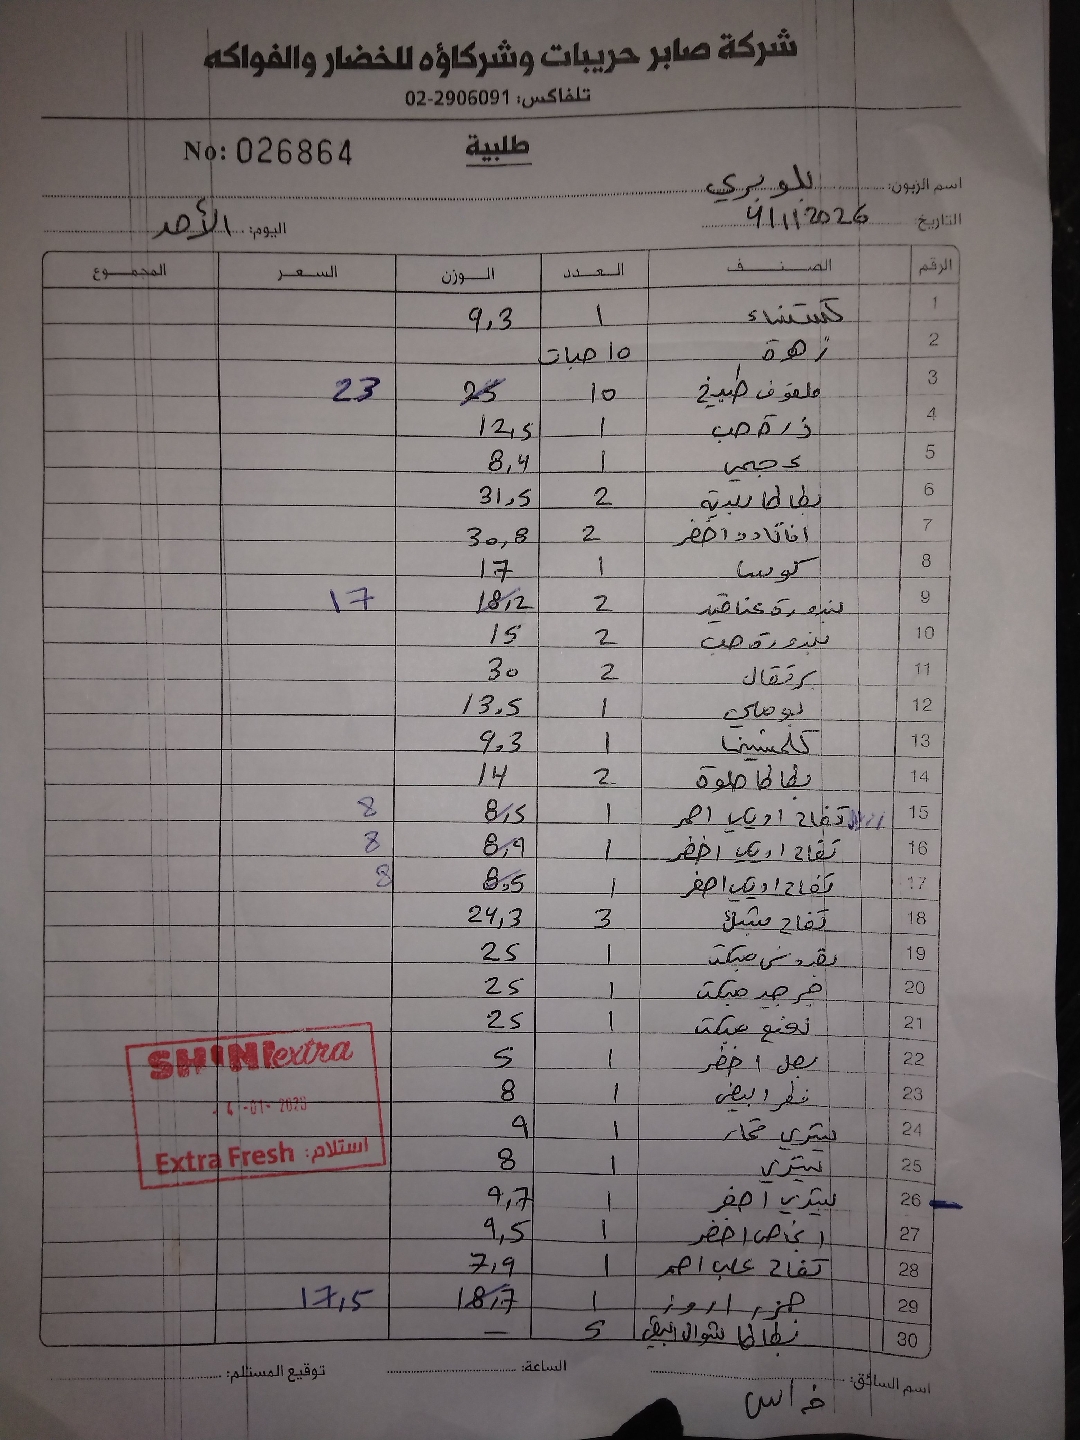 شركة صابر حريبات وشركاؤه للخضار والفواكه
تلفاكس: 02-2906091
طلبية
No: 026864
اسم الزبون: بلوبري
التاريخ: 4/1/2026
اليوم: الأحد
الرقم الصنف العدد الوزن السعر المجموع
1 كستناء 1 9,3
2 زهرة 10 حبات
3 ملفوف طبيخ 10 25 23
4 ذرة حب 1 12,5
5 عجمي 1 8,4
6 بطاطا بلدية 2 31,5
7 افاكادو اخضر 2 30,8
8 كوسا 1 17
9 بندورة عناقيد 2 18,2 17
10 بندورة حب 2 15
11 برتقال 2 30
12 بوملي 1 13,5
13 كلمنتينا 1 9,3
14 بطاطا حلوة 2 14
15 تفاح احمر 1 8,5 8
16 تفاح اخضر 1 8,9 8
17 تفاح اصفر 1 8,5 8
18 تفاح 3 24,3
19 بقدونس مبكت 1 25
20 مبكت 1 25
21 نعنع مبكت 1 25
22 بصل اخضر 1 5
23 فطر ابيض 1 8
24 1 9
25 1 8
26 اصفر 1 9,7
27 انجاص اخضر 1 9,5
28 تفاح علب احمر 1 7,9
29 جزر 1 18,7 17,5
30 بطاطا شوال 5 —
SHINI extra
4-01-2026
استلام: Extra Fresh
اسم السائق: فراس
الساعة:
توقيع المستلم: